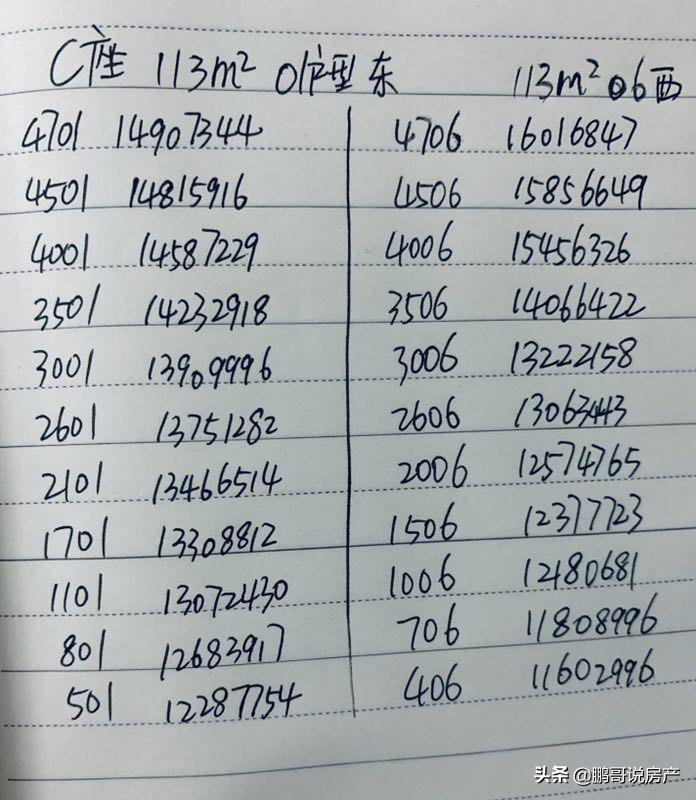 C座 113m² 01户型 东 113m² 06西
4701 14907344 4706 16016847
4501 14815916 4506 15856649
4001 14587229 4006 15456326
3501 14232918 3506 14066422
3001 13909996 3006 13222158
2601 13751282 2606 13063443
2101 13466514 2006 12574765
1701 13308812 1506 12377723
1101 13072430 1006 12180681
801 12683917 706 11808996
501 12287754 406 11602996
头条 @鹏哥说房产